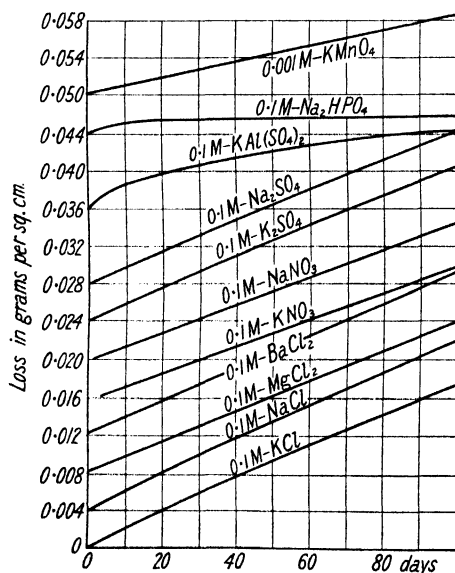 0·058
0·054
0·050
0·044
0·040
0·036
0·032
0·028
0·024
0·020
0·016
0·012
0·008
0·004
0
Loss in grams per sq. cm.
0·001M-KMnO₄
0·1M-Na₂HPO₄
0·1M-KAl(SO₄)₂
0·1M-Na₂SO₄
0·1M-K₂SO₄
0·1M-NaNO₃
0·1M-KNO₃
0·1M-BaCl₂
0·1M-MgCl₂
0·1M-NaCl
0·1M-KCl
0 20 40 60 80 days